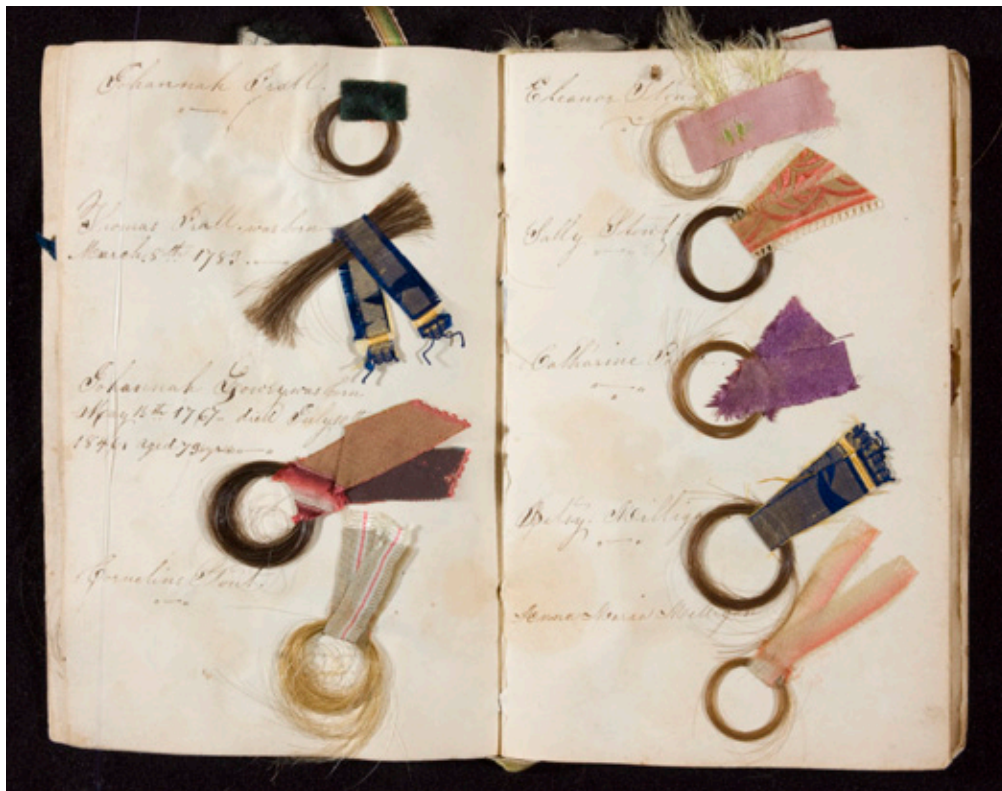 Johannah Prall.
Thomas Prall, was born
March, 8th 1782.
Johannah Gowey was born
May 15th 1767 died July
aged 79 yrs
Cornelius Stout.
Eleanor
Sally Stout.
Catharine
Betsy Milligan
Anna Maria Milligan